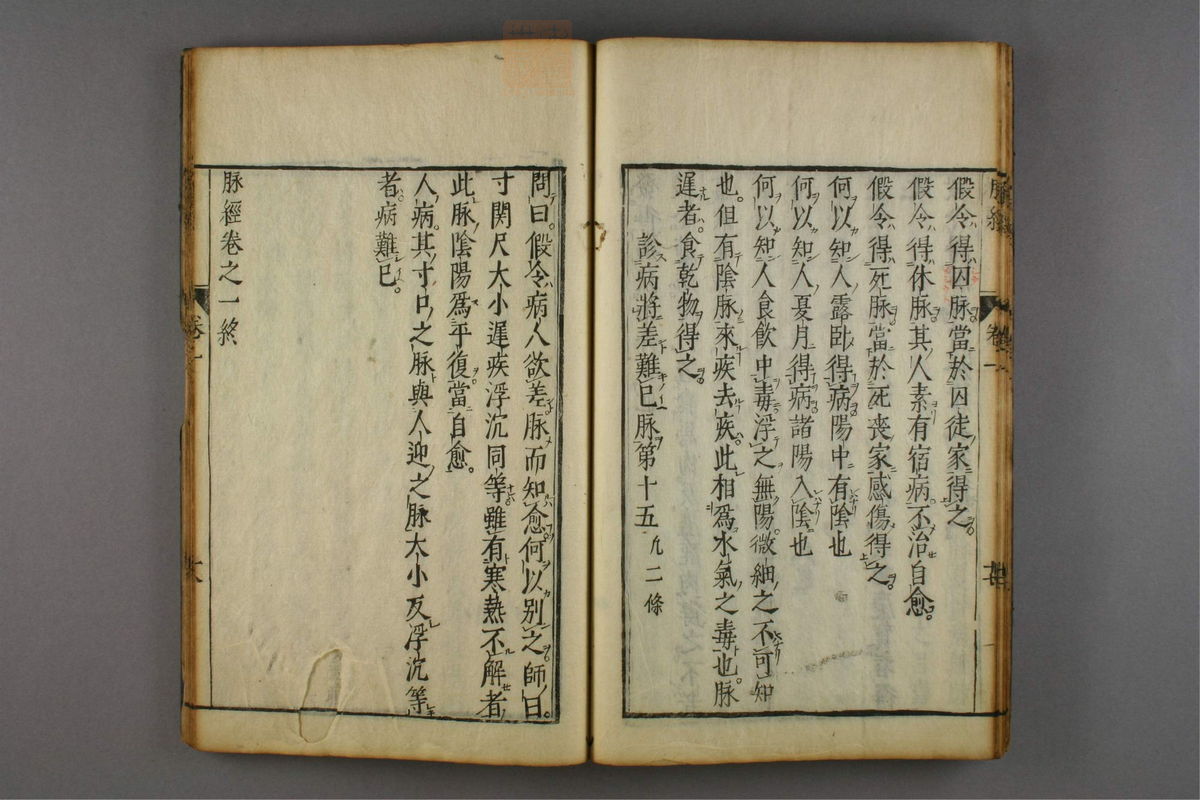 假令得囚脉當於囚徒家得之
假令得休脉其人素有宿病不治自愈
假令得死脉當於死喪家感傷得之
何以知人露卧得病陽中有陰也
何以知人夏月得病諸陽入陰也
何以知人食飲中毒浮之無陽微細之不可知
也但有陰脉來疾去疾此相爲水氣之毒也脉
遲者食乾物得之
診病將差難已脉第十五 凡二條
問曰假令病人欲差脉而知愈何以别之師曰
寸関尺大小遲疾浮沉同等雖有寒熱不解者
此脉陰陽爲平復當自愈
人病其寸口之脉與人迎之脉大小及浮沉等
者病難已
脉經卷之一終